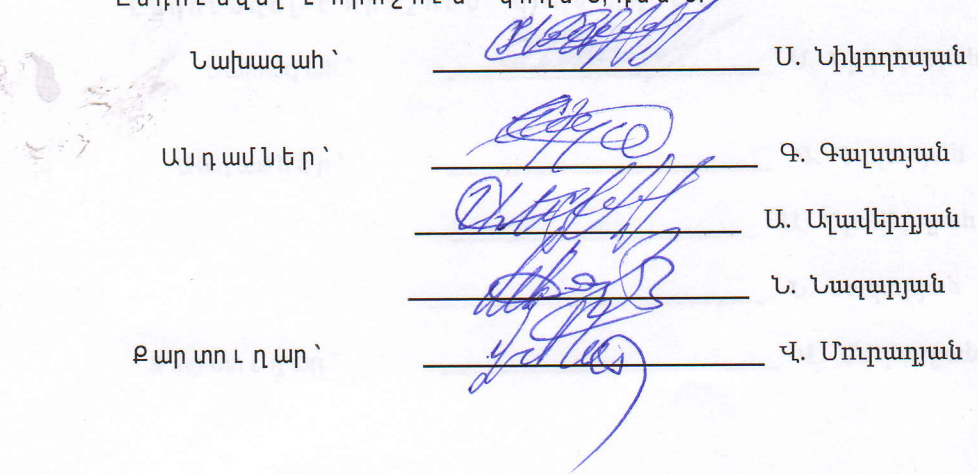 Նախագահ՝ Ս. Նիկողոսյան
Անդամներ՝ Գ. Գալստյան
Ա. Ալավերդյան
Ն. Նազարյան
Քարտուղար՝ Վ. Մուրադյան